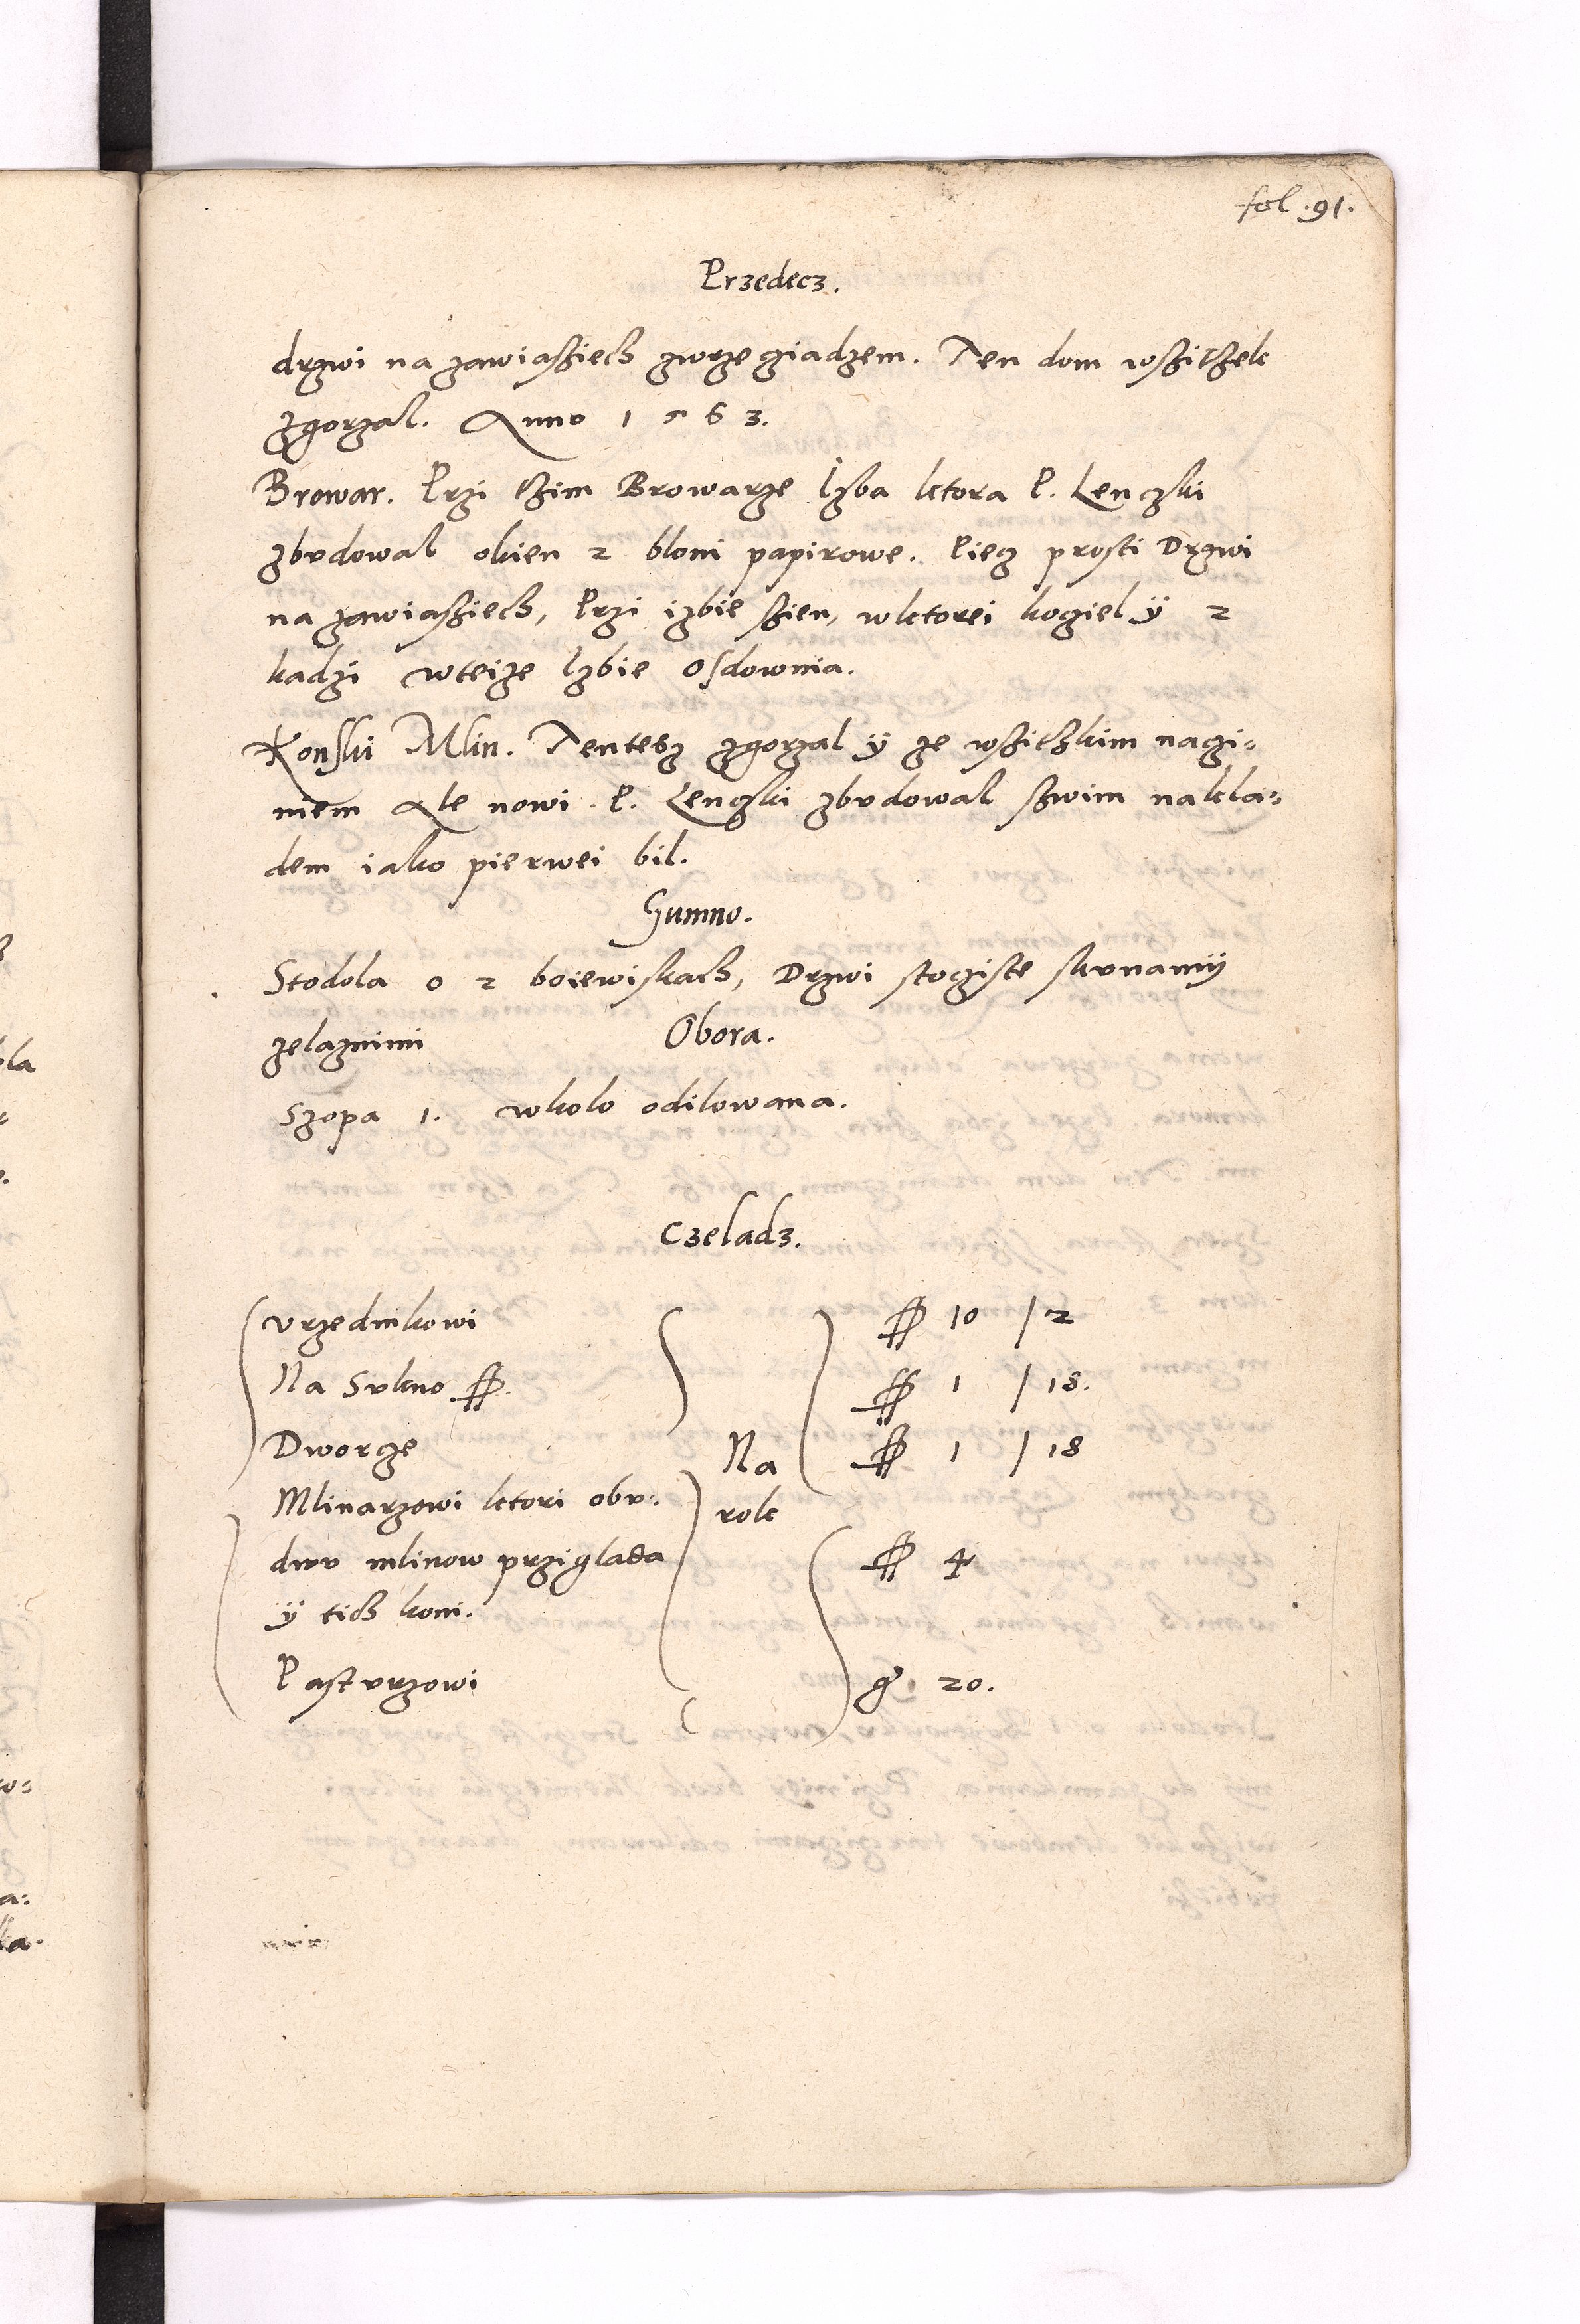 fol. 91.
Przedecz.
drzwi na zawiaßiech zwrzegiadzem. Ten dom wßiczek
zgorzal. Anno 1563.
Browar. Przi Tzim Browarze Izba ktora P. Lenczki
zbvdowal okien 2 bloni papirowe. Piecz prosti Drzwi
na zawiaßiech, Przi izbie ßien, wktorei koziel ÿ 2
kadzi wteize Izbie Osdownia.
Konski Mlin. Ten tesz zgorzal ÿ ze wßiczkim naczi=
niem Ale nowi. P. Lenczki zbvdowal swim nakla=
dem iako pierwei bil.
Gumno.
Stodola o 2 boiewiskach, Drzwi stoziste skvnamÿ
zelaznimi
Obora.
Szopa 1. wkolo odilowana.
Czeladz.
Vrzednikowi ₰ 10 / 2
Na Svkno ₰. ₰ 1 / 18.
Dworcze Na ₰ 1 / 18
Mlinarzowi ktori obv= rok
dwv mlinow prziglada ₰ 4
ÿ tich koni.
Pastvrzowi g 20.